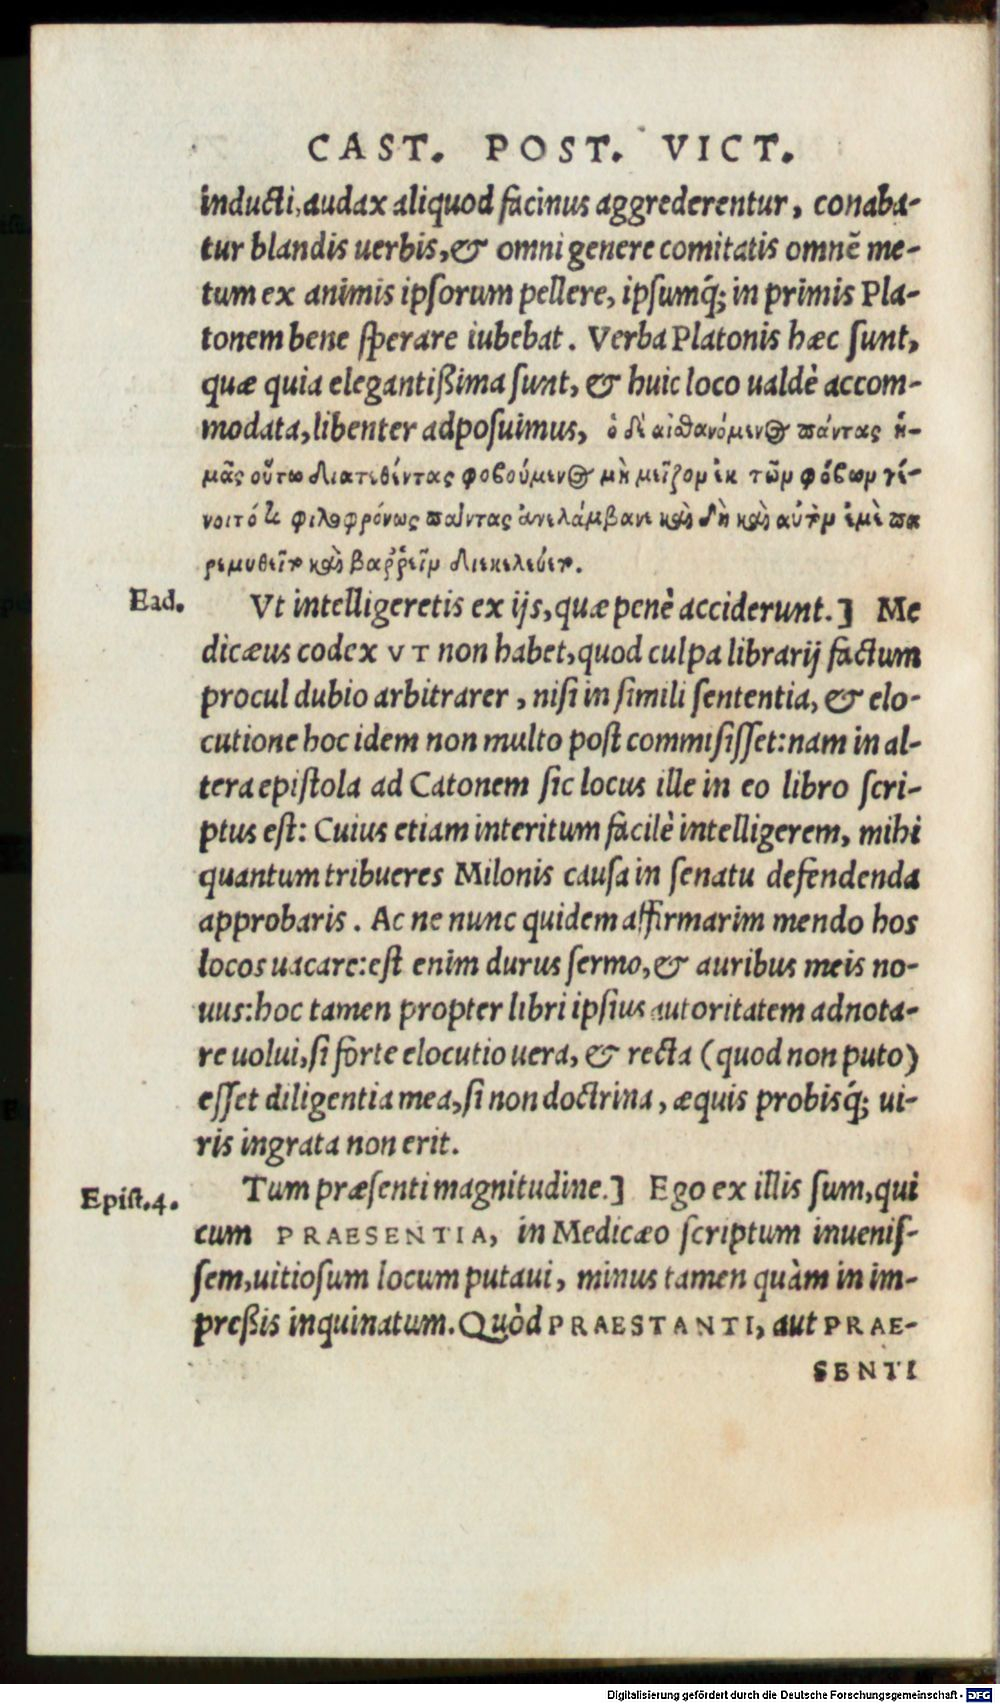 CAST. POST. VICT.
inducti, audax aliquod facinus aggrederentur, conaba-
tur blandis uerbis, & omni genere comitatis omnē me-
tum ex animis ipsorum pellere, ipsumq́; in primis Pla-
tonem bene sperare iubebat. Verba Platonis hæc sunt,
quæ quia elegantißima sunt, & huic loco ualdè accom-
modata, libenter adposuimus, ὁ δὲ αἰσθανόμενος πάντας ἡ-
μᾶς οὕτω διατεθέντας φοβούμενος μὴ μεῖζον ἐκ τῶν φόβων γέ-
νοιτό τι φιλοφρόνως πάντας ἀνελάμβανε καὶ δὴ καὶ αὐτὸν ἐμὲ πα
ρεμυθεῖτο καὶ θαῤῥεῖν διεκελεύετο.
Ead. Vt intelligeretis ex ijs, quæ penè acciderunt.] Me
dicæus codex VT non habet, quod culpa librarij factum
procul dubio arbitrarer, nisi in simili sententia, & elo-
cutione hoc idem non multo post commisisset: nam in al-
tera epistola ad Catonem sic locus ille in eo libro scri-
ptus est: Cuius etiam interitum facilè intelligerem, mihi
quantum tribueres Milonis causa in senatu defendenda
approbaris. Ac ne nunc quidem affirmarim mendo hos
locos uacare: est enim durus sermo, & auribus meis no-
uus: hoc tamen propter libri ipsius autoritatem adnota-
re uolui, si forte elocutio uera, & recta (quod non puto)
esset diligentia mea, si non doctrina, æquis probisq́; ui-
ris ingrata non erit.
Epist.4. Tum præsenti magnitudine.] Ego ex illis sum, qui
cum PRAESENTIA, in Medicæo scriptum inuenis-
sem, uitiosum locum putaui, minus tamen quàm in im-
preßis inquinatum. Quòd PRAESTANTI, aut PRAE-
SENTI
Digitalisierung gefördert durch die Deutsche Forschungsgemeinschaft - DFG